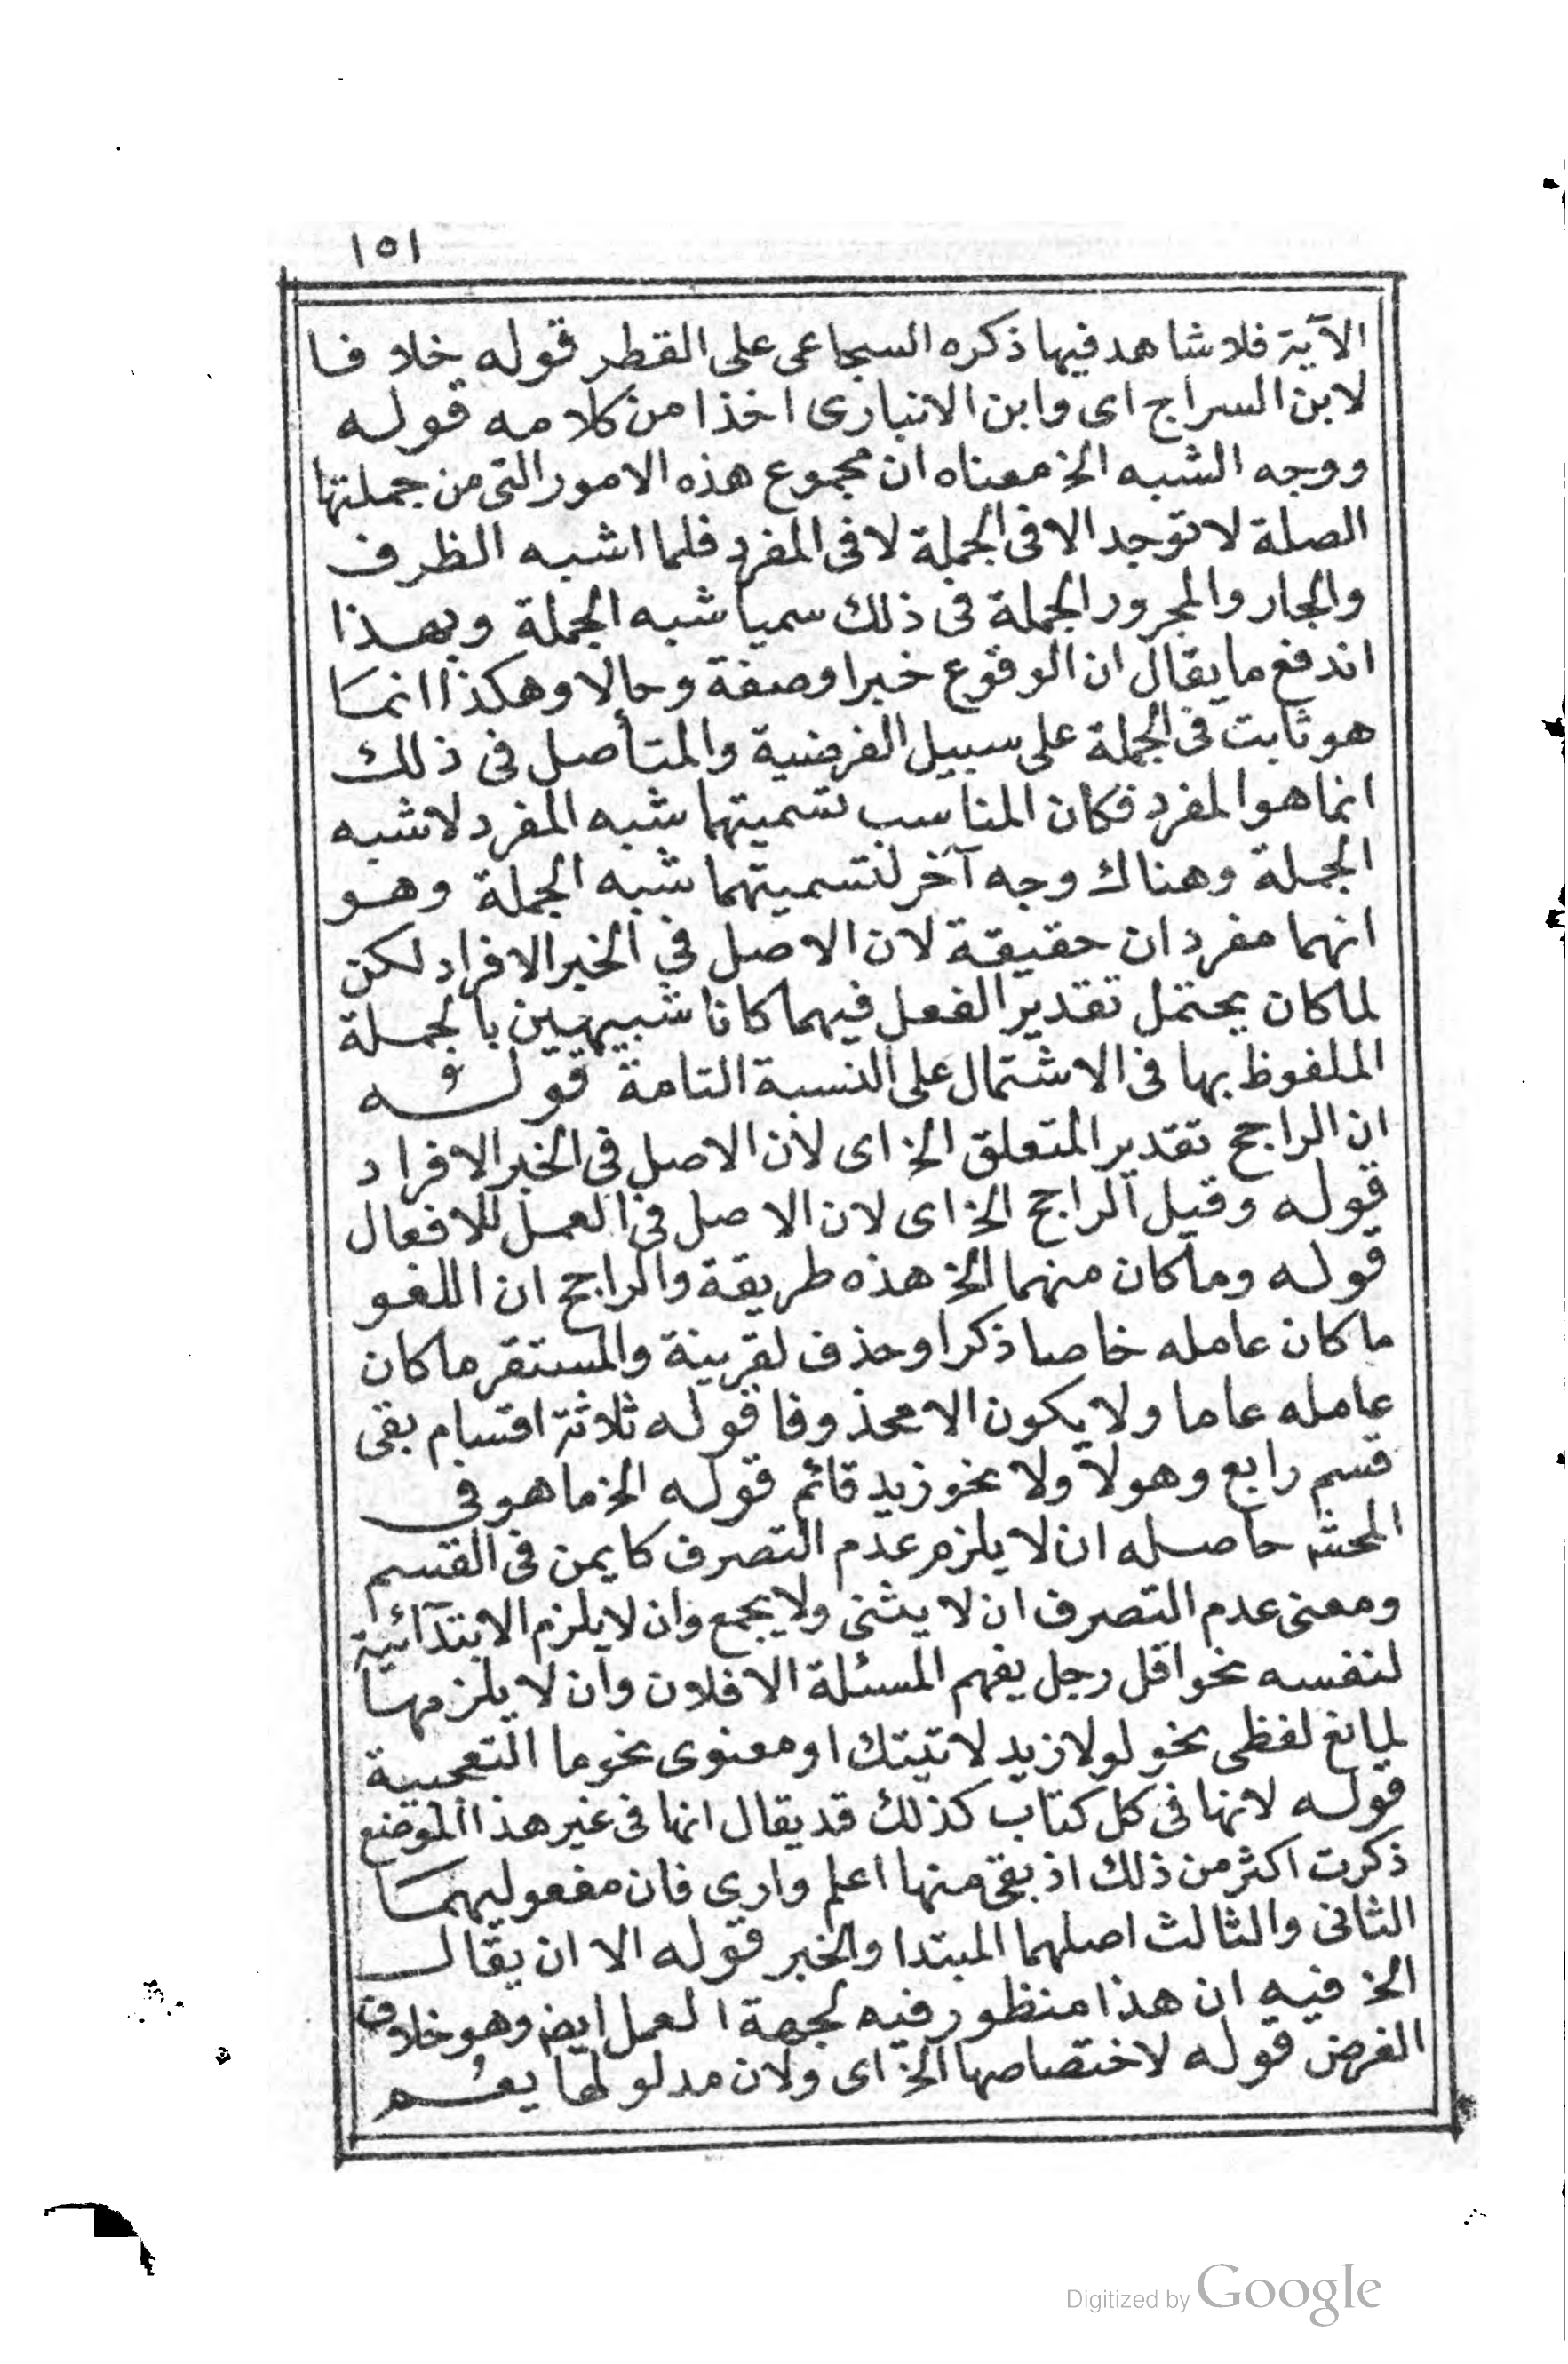 ١٥١
الآية فلا شاهد فيها ذكره السجاعى على القطر قوله خلافا
لابن السراج اى وابن الانبارى اخذا من كلامه قوله
ووجه الشبه الخ معناه ان مجموع هذه الامور التى من جملتها
الصلة لا توجد الا فى الجملة لا فى المفرد فلما اشبه الظرف
والجار والمجرور الجملة فى ذلك سميا شبه الجملة وبهذا
اندفع ما يقال ان الوقوع خبرا وصفة وحالا وهكذا انما
هو ثابت فى الجملة على سبيل الفرضية والمتأصل فى ذلك
انما هو المفرد فكان المناسب تسميتهما شبه المفرد لا شبه
الجملة وهناك وجه آخر لتسميتهما شبه الجملة وهو
انهما مفردان حقيقة لان الاصل في الخبر الافراد لكن
لما كان يحتمل تقدير الفعل فيهما كانا شبيهين بالجملة
الملفوظ بها فى الاشتمال على النسبة التامة قوله
ان الراجح تقدير المتعلق الخ اى لأن الاصل فى الخبر الافراد
قوله وقيل الراجح الخ اى لان الاصل فى العمل للافعال
قوله وما كان منهما الخ هذه طريقة والراجح ان اللغو
ما كان عامله خاصا ذكر او حذف لقرينة والمستقر ما كان
عامله عاما ولا يكون الا محذوفا قوله ثلاثة اقسام بقى
قسم رابع وهو لا ولا نحو زيد قائم قوله الخ ما هو فى
المحشه حاصله ان لا يلزم عدم التصرف كايمن فى القسم
ومعنى عدم التصرف ان لا يثنى ولا يجمع وان لا يلزم الابتدآئية
لنفسه نحو اقل رجل يفهم المسئلة الا فلان وان لا يلزمها
لمانع لفظى نحو لولا زيد لاتيتك او معنوى نحو ما التعجبية
قوله لانها فى كل كتاب كذلك قد يقال انها فى غير هذا الموضع
ذكرت اكثر من ذلك اذ بقى منها اعلم وارى فان مفعوليهما
الثانى والثالث اصلهما المبتدا والخبر قوله الا ان يقال
الخ فيه ان هذا منظور فيه لجهة العمل ايضا وهو خلاف
الفرض قوله لاختصاصها الخ اى ولان مدلولها يعم
Digitized by Google